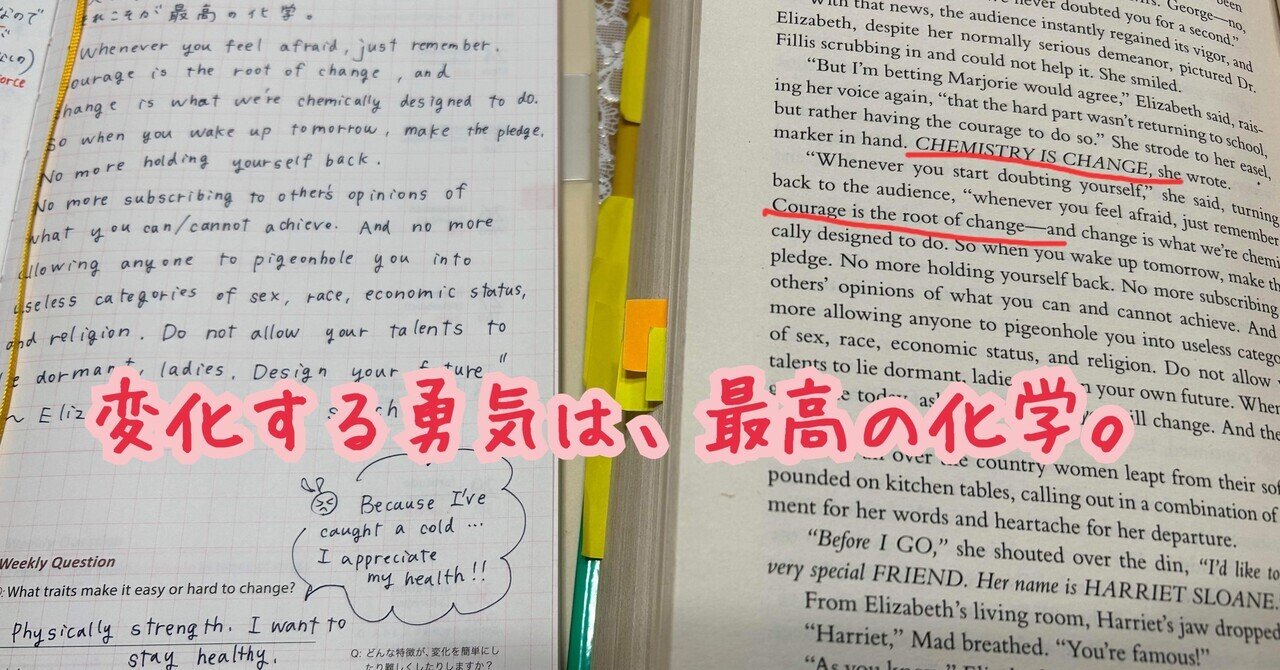 なので
それこそが最高の化学。
Whenever you feel afraid, just remember.
ourage is the root of change, and
hange is what we're chemically designed to do.
So when you wake up tomorrow, make the pledge.
No more holding yourself back.
No more subscribing to other's opinions of
what you can/cannot achieve. And no more
allowing anyone to pigeonhole you into
useless categories of sex, race, economic status,
and religion. Do not allow your talents to
dormant, ladies. Design your future"
~ Eliz
変化する勇気は、最高の化学。
Because I've
caught a cold ...
I appreciate
my health!!
Weekly Question
: What traits make it easy or hard to change?
Physically strength. I want to
stay healthy.
Q: どんな特徴が、変化を簡単にし
たり難しくしたりしますか?
orce
been
never doubted you for a second."
With that news, the audience instantly regained its vigor, and
Elizabeth, despite her normally serious demeanor, pictured Dr.
Fillis scrubbing in and could not help it. She smiled.
"But I'm betting Marjorie would agree," Elizabeth said, rais-
ing her voice again, "that the hard part wasn't returning to school,
but rather having the courage to do so." She strode to her easel,
marker in hand. CHEMISTRY IS CHANGE, she wrote.
"Whenever you start doubting yourself," she said, turning
back to the audience, "whenever you feel afraid, just remember
Courage is the root of change—and change is what we're chemi
cally designed to do. So when you wake up tomorrow, make th
pledge. No more holding yourself back. No more subscribing
others' opinions of what you can and cannot achieve. And
more allowing anyone to pigeonhole you into useless catego
of sex, race, economic status, and religion. Do not allow
talents to lie dormant, ladie your own future. When
today, as
will change. And the
over the country women leapt from their sof
pounded on kitchen tables, calling out in a combination of
ment for her words and heartache for her departure.
"Before I GO," she shouted over the din, "I'd like to
very special FRIEND. Her name is HARRIET SLOANE.
From Elizabeth's living room, Harriet's jaw dropped
"Harriet," Mad breathed. "You're famous!"